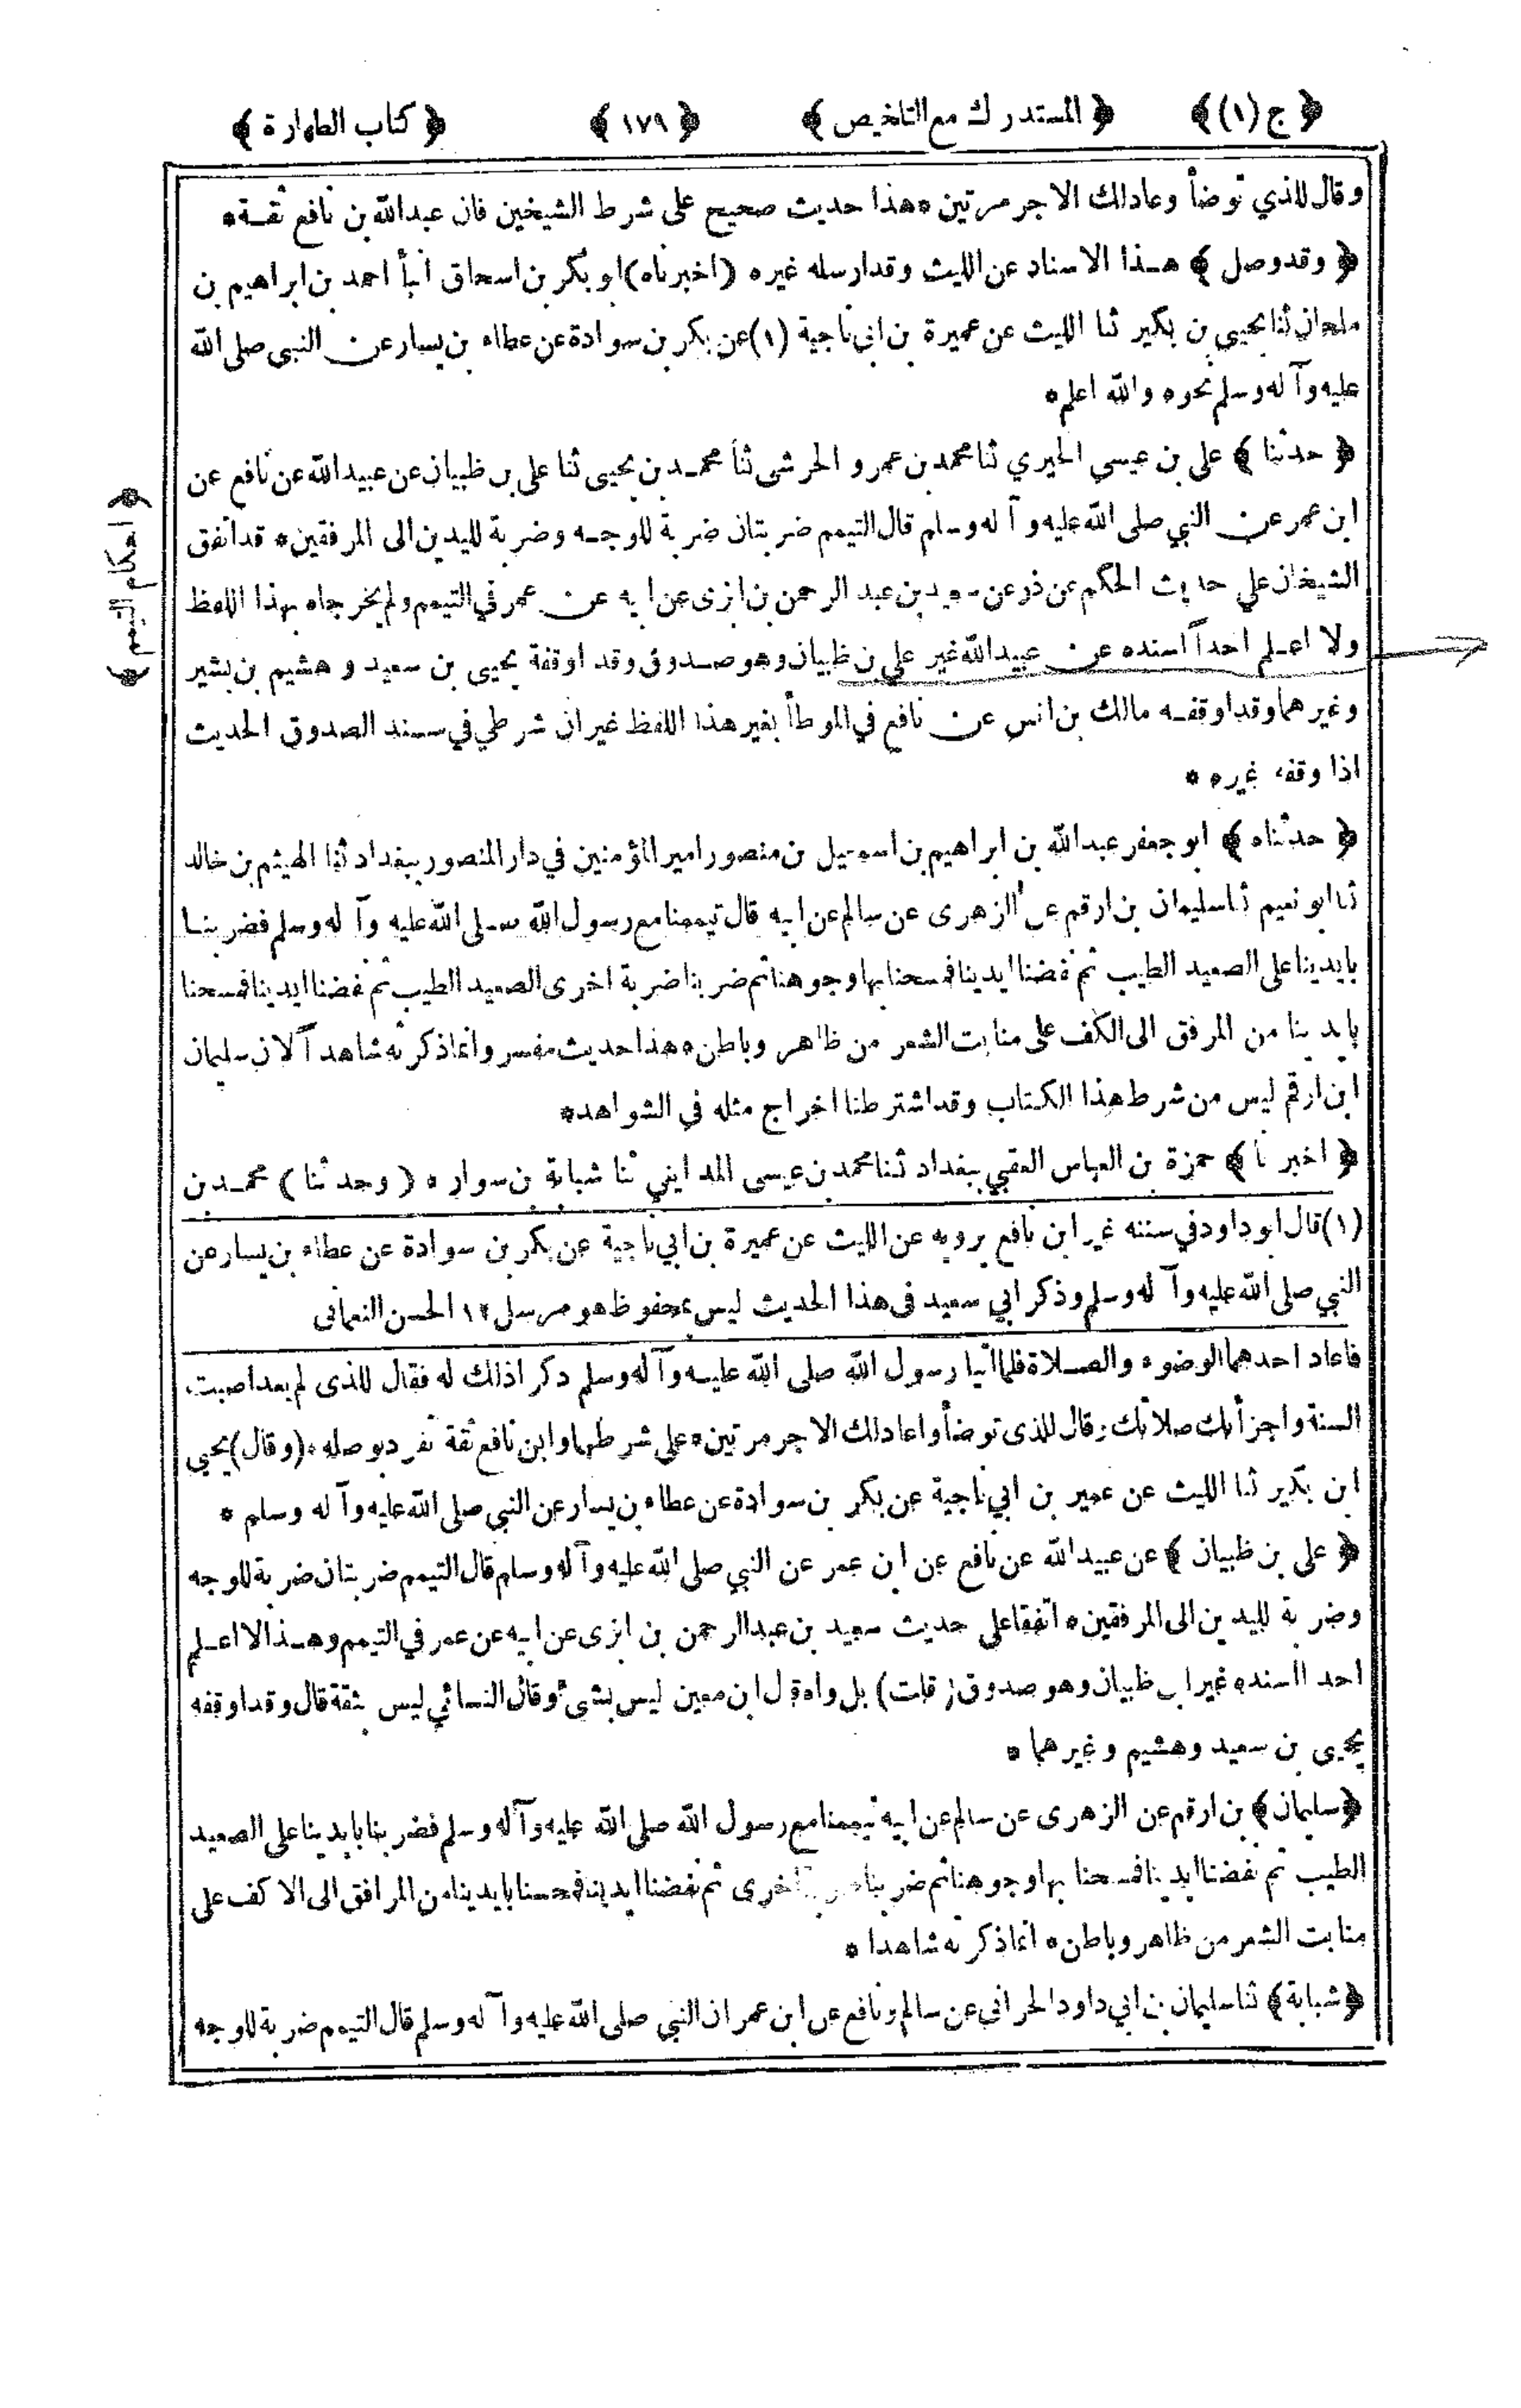 ﴿ ج (١) ﴾ ﴿ المستدرك مع التلخيص ﴾ ﴿ ١٧٩ ﴾ ﴿ كتاب الطهارة ﴾
وقال للذي توضأ وعاد لك الاجر مرتين * هذا حديث صحيح على شرط الشيخين فان عبد الله بن نافع ثقة *
﴿ وقد وصل ﴾ هذا الاسناد عن الليث وقد ارسله غيره (اخبرناه) ابو بكر بن اسحاق انبأ احمد بن ابراهيم بن
ملحان ثنا يحيى بن بكير ثنا الليث عن عميرة بن ابي ناجية (١) عن بكر بن سوادة عن عطاء بن يسار عن النبي صلى الله
عليه وآله وسلم نحوه والله اعلم *
﴿ احكام التيمم ﴾
﴿ حدثنا ﴾ علي بن عيسى الحيري ثنا محمد بن عمرو الحرشي ثنا محمد بن يحيى ثنا علي بن ظبيان عن عبيد الله عن نافع عن
ابن عمر عن النبي صلى الله عليه وآله وسلم قال التيمم ضربتان ضربة للوجه وضربة لليدين الى المرفقين * قد اتفق
الشيخان على حديث الحكم عن ذر عن سعيد بن عبد الرحمن بن ابزى عن ابيه عن عمر في التيمم ولم يخرجاه بهذا اللفظ
ولا اعلم احداً اسنده عن عبيد الله غير علي بن ظبيان وهو صدوق وقد اوقفة يحيى بن سعيد وهشيم بن بشير
وغيرهما وقد اوقفه مالك بن انس عن نافع في الموطأ بغير هذا اللفظ غير ان شرطي في سند الصدوق الحديث
اذا وقفه غيره *
﴿ حدثناه ﴾ ابو جعفر عبد الله بن ابراهيم بن اسمعيل بن منصور امير المؤمنين في دار المنصور ببغداد ثنا الهيثم بن خالد
ثنا ابو نعيم ثنا سليمان بن ارقم عن الزهرى عن سالم عن ابيه قال تيممنا مع رسول الله صلى الله عليه وآله وسلم فضربنا
بايدينا على الصعيد الطيب ثم نفضنا ايدينا فمسحنا بها وجوهنا ثم ضربنا ضربة اخرى الصعيد الطيب ثم نفضنا ايدينا فمسحنا
بايدينا من المرفق الى الكف على منابت الشعر من ظاهر وباطن * هذا حديث مفسر وانما ذكرته شاهداً لان سليمان
ابن ارقم ليس من شرط هذا الكتاب وقد اشترطنا اخراج مثله في الشواهد *
﴿ اخبرنا ﴾ حمزة بن العباس العقبي ببغداد ثنا محمد بن عيسى المدايني ثنا شبابة بن سوار * (وحدثنا) محمد بن
(١) قال ابو داود في سننه غير ابن نافع يرويه عن الليث عن عميرة بن ابي ناجية عن بكر بن سوادة عن عطاء بن يسار عن
النبي صلى الله عليه وآله وسلم وذكر ابي سعيد في هذا الحديث ليس بمحفوظ هو مرسل ١٢ الحسن النعمانى
فاعاد احدهما الوضوء والصلاة فلما اتيا رسول الله صلى الله عليه وآله وسلم ذكرا ذلك له فقال للذى لم يعد اصبت
السنة واجزأتك صلاتك وقال للذى توضأ واعاد لك الاجر مرتين * على شرطهما وابن نافع ثقة تفرد بوصله * (وقال) يحيى
ابن بكير ثنا الليث عن عمير بن ابي ناجية عن بكر بن سوادة عن عطاء بن يسار عن النبي صلى الله عليه وآله وسلم *
﴿ علي بن ظبيان ﴾ عن عبيد الله عن نافع عن ابن عمر عن النبي صلى الله عليه وآله وسلم قال التيمم ضربتان ضربة للوجه
وضربة لليدين الى المرفقين * اتفقا على حديث سعيد بن عبد الرحمن بن ابزى عن ابيه عن عمر في التيمم وهذا لا اعلم
احدا اسنده غير ابن ظبيان وهو صدوق (قلت) بل واه قال ابن معين ليس بشيء وقال النسائي ليس بثقة قال وقد اوقفه
يحيى بن سعيد وهشيم وغيرهما *
﴿ سليمان ﴾ بن ارقم عن الزهرى عن سالم عن ابيه تيممنا مع رسول الله صلى الله عليه وآله وسلم فضربنا بايدينا على الصعيد
الطيب ثم نفضنا ايدينا فمسحنا بها وجوهنا ثم ضربنا اخرى ثم نفضنا ايدينا فمسحنا بايدينا من المرافق الى الاكف على
منابت الشعر من ظاهر وباطن * انما ذكرته شاهدا *
﴿ شبابة ﴾ ثنا سليمان بن ابي داود الحراني عن سالم ونافع عن ابن عمر ان النبي صلى الله عليه وآله وسلم قال التيمم ضربة للوجه